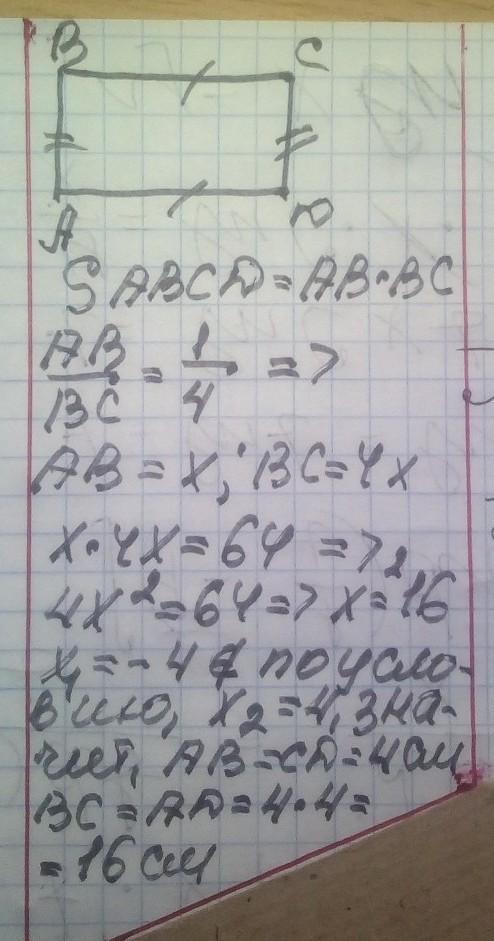 B C
A D
S ABCD = AB · BC
AB/BC = 1/4 =>
AB = x; BC = 4x
x · 4x = 64 =>
4x² = 64 => x² = 16
x₁ = -4 ∉ по усло-
вию, x₂ = 4, зна-
чит, AB = CD = 4 см
BC = AD = 4 · 4 =
= 16 см